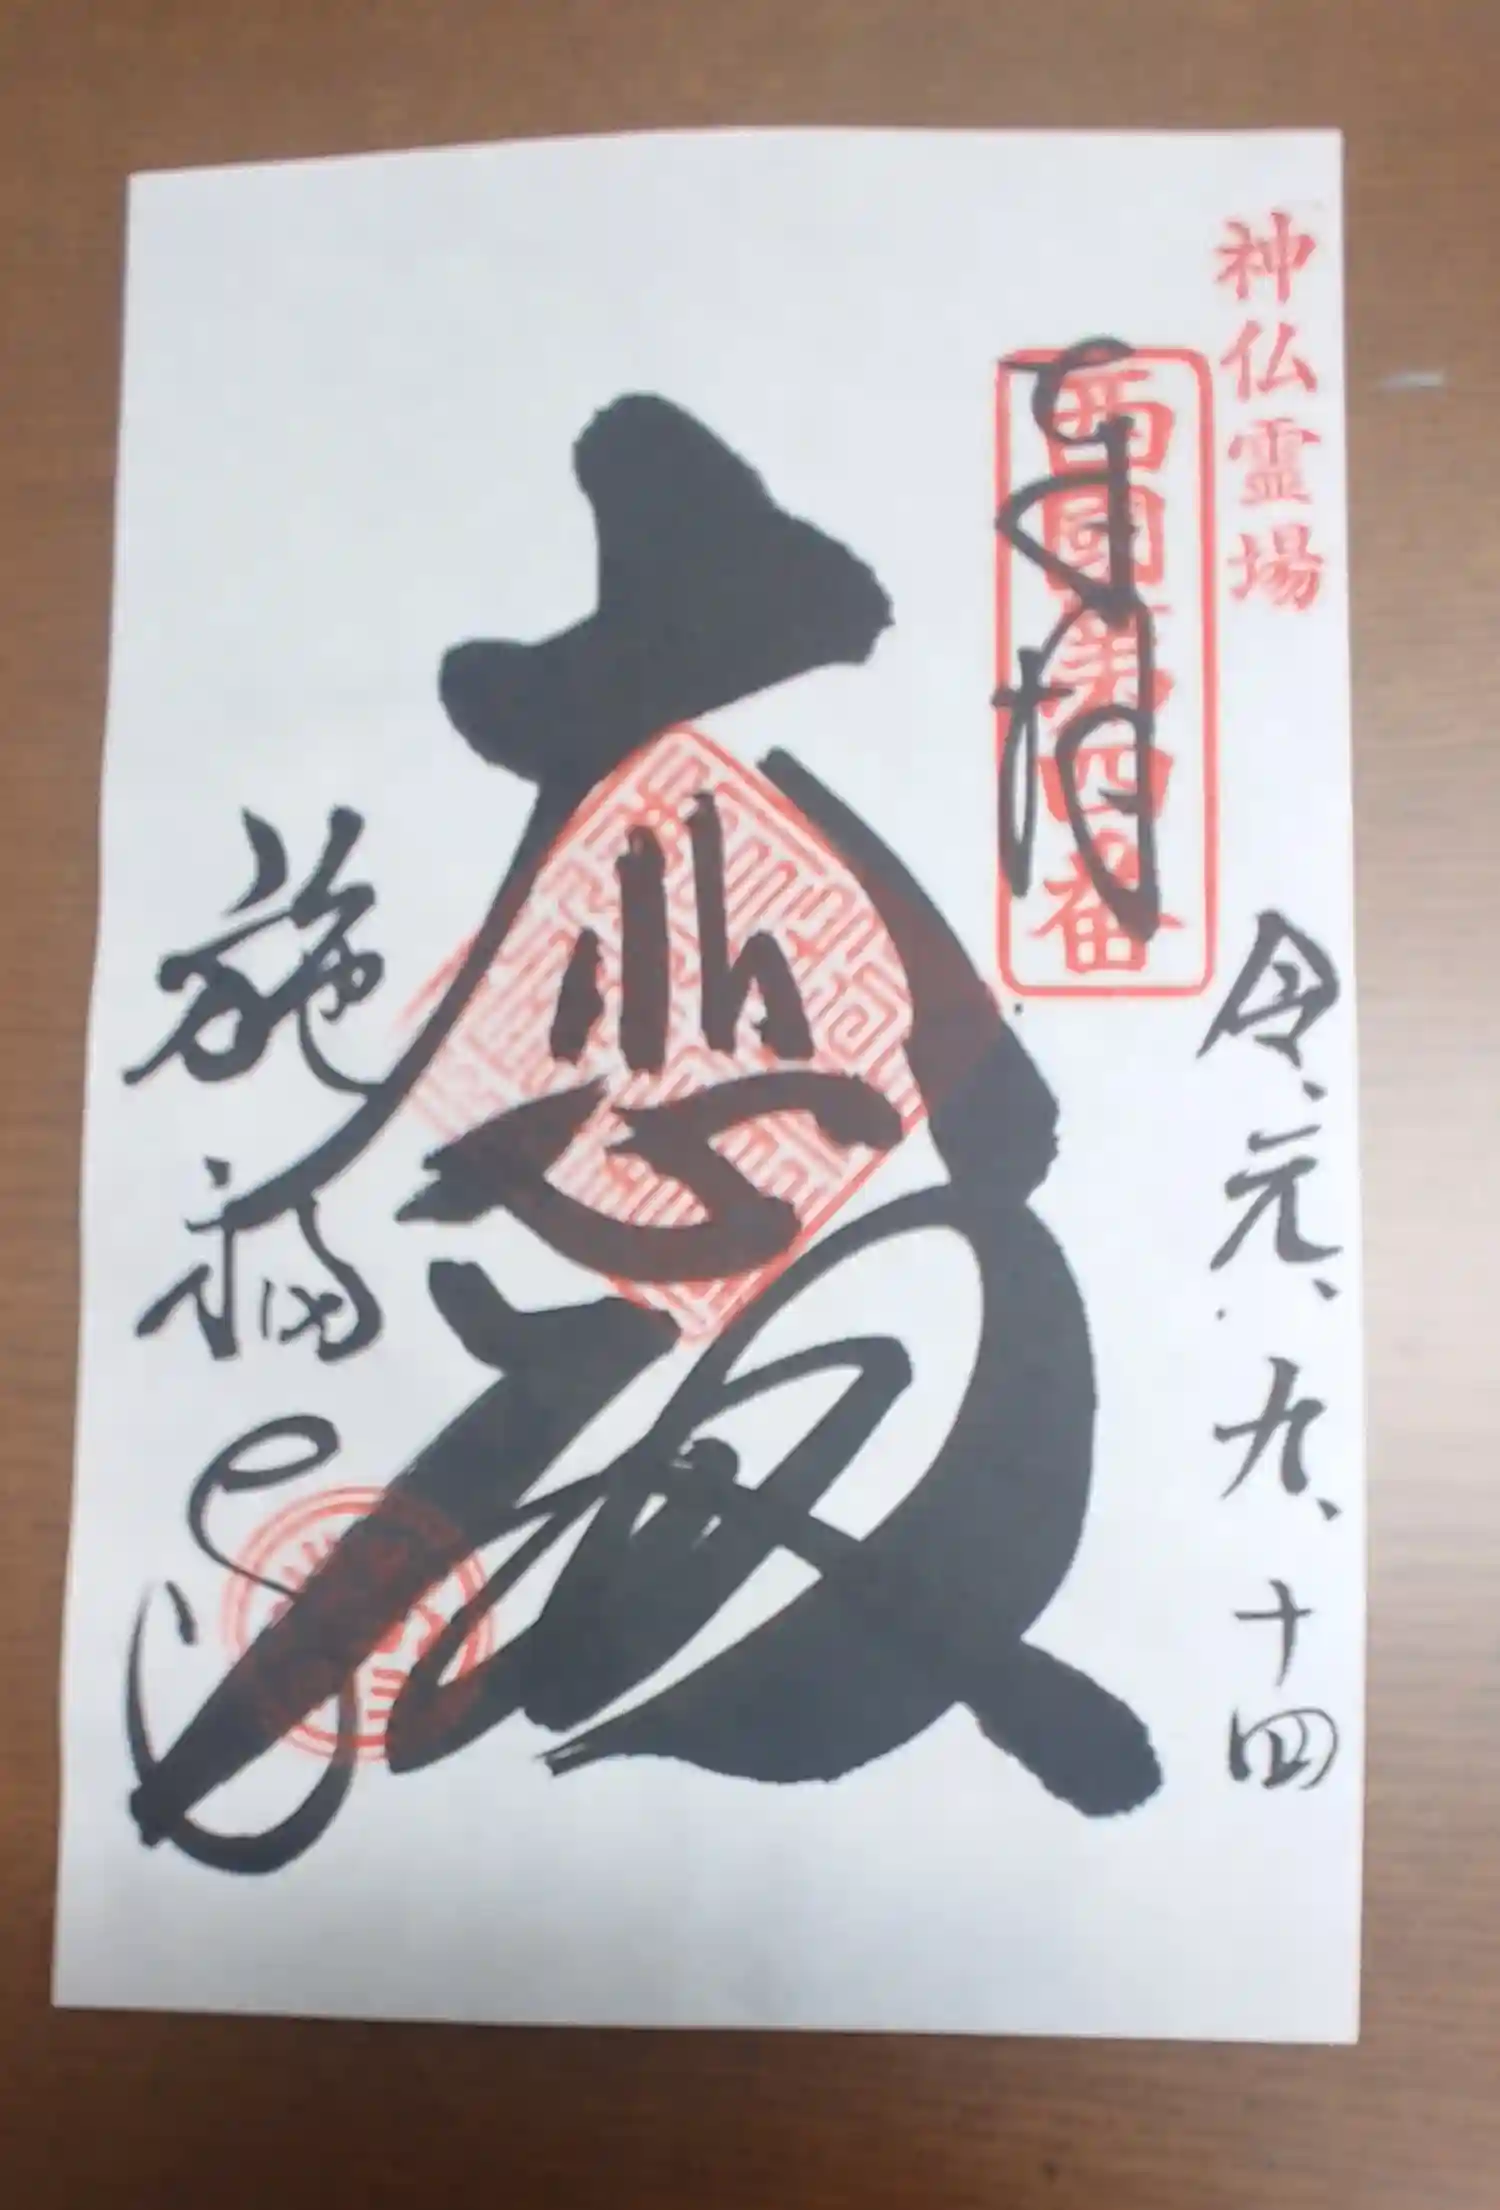 神仏霊場
西國第四番
奉拝
令、元、九、十四
大悲殿
施福寺